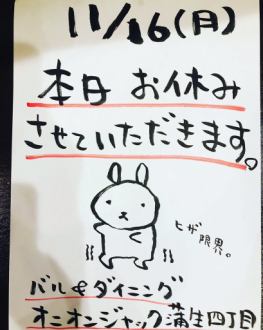 11/16(月)
本日 お休み
させていただきます。
ヒザ
限界。
バル&ダイニング
オニオンジャック蒲生四丁目